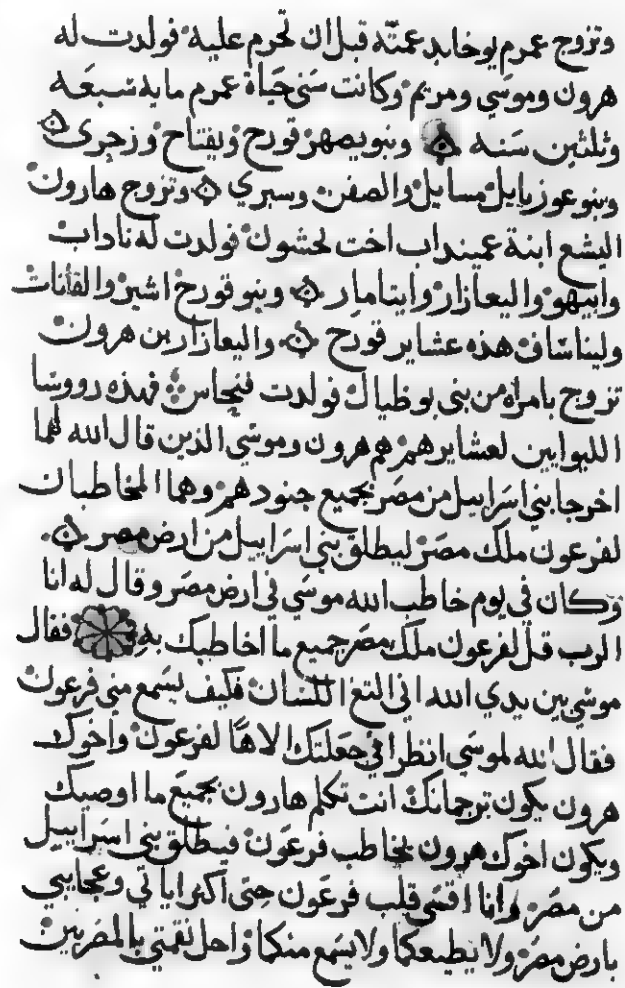 وتزوج عمرم يوخابد عمته قبل ان تحرم عليه فولدت له
هرون وموسي ومريم وكانت سني حياة عمرم مايه سبعه
وثلثين سنه وبنو يصهر قورح ويفتاح وزجري
وبنو عوزيايل مسايل والصفن وسبري وتزوج هارون
اليشع ابنة عميناداب اخت لحشون فولدت له ناداب
وابيهو واليعازار وايتامار وبنو قورح اشير والقانات
ولياساف هذه عشاير قورح واليعازار بن هرون
تزوج بامراه من بني بوظيال فولدت فنحاس فهذه رووسا
الليوايين لعشايرهم هم هرون وموسي الذين قال الله لهما
اخرجا بني اسراييل من مصر بجميع جنودهم وهما المخاطبان
لفرعون ملك مصر ليطلق بني اسراييل من ارض مصر
وكان في يوم خاطب الله موسي في ارض مصر وقال له انا
الرب قل لفرعون ملك مصر جميع ما اخاطبك به فقال
موسي بين يدي الله اني التغ اللسان فكيف يسمع مني فرعون
فقال الله لموسي انظر اني جعلتك الاها لفرعون واخوك
هرون يكون ترجمانك انت تكلم هارون بجميع ما اوصيك
ويكون اخوك هرون يخاطب فرعون فيطلق بني اسراييل
من مصر وانا اقسي قلب فرعون حتى اكثر اياتي وعجايبي
بارض مصر ولا يطيعكما ولا يسمع منكما واحل نقمتي بالمصريين